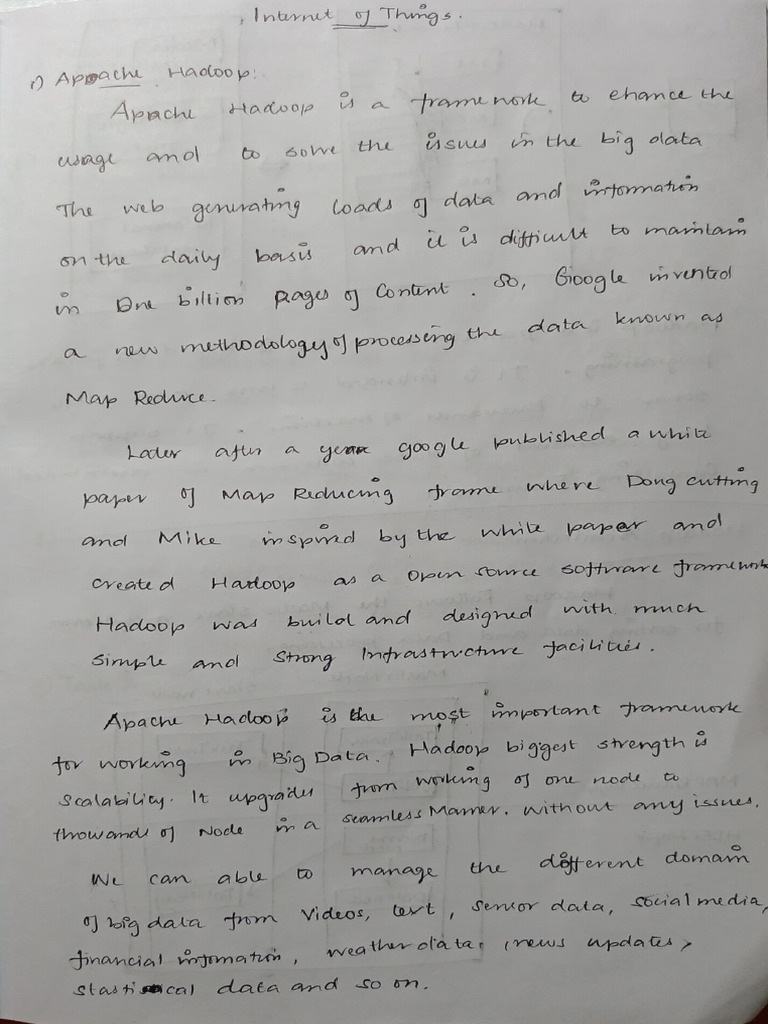 Internet of Things.
1) Apache Hadoop:
Apache Hadoop is a framework to ehance the
usage and to solve the issues in the big data
The web generating loads of data and information
on the daily basis and it is difficult to maintain
in One billion pages of Content. So, Google invented
a new methodology of processing the data known as
Map Reduce.
Later after a year google published a white
paper of Map Reducing frame where Dong cutting
and Mike inspired by the white paper and
created Hadoop as a open source software framework
Hadoop was build and designed with much
simple and strong Infrastructure facilities.
Apache Hadoop is the most important framework
for working in Big Data. Hadoop biggest strength is
Scalability. It upgrades from working of one node to
thowands of Node in a seamless Manner. without any issues.
We can able to manage the different domain
of big data from Videos, text, sensor data, social media,
financial information, weather data, news updates,
stastical data and so on.